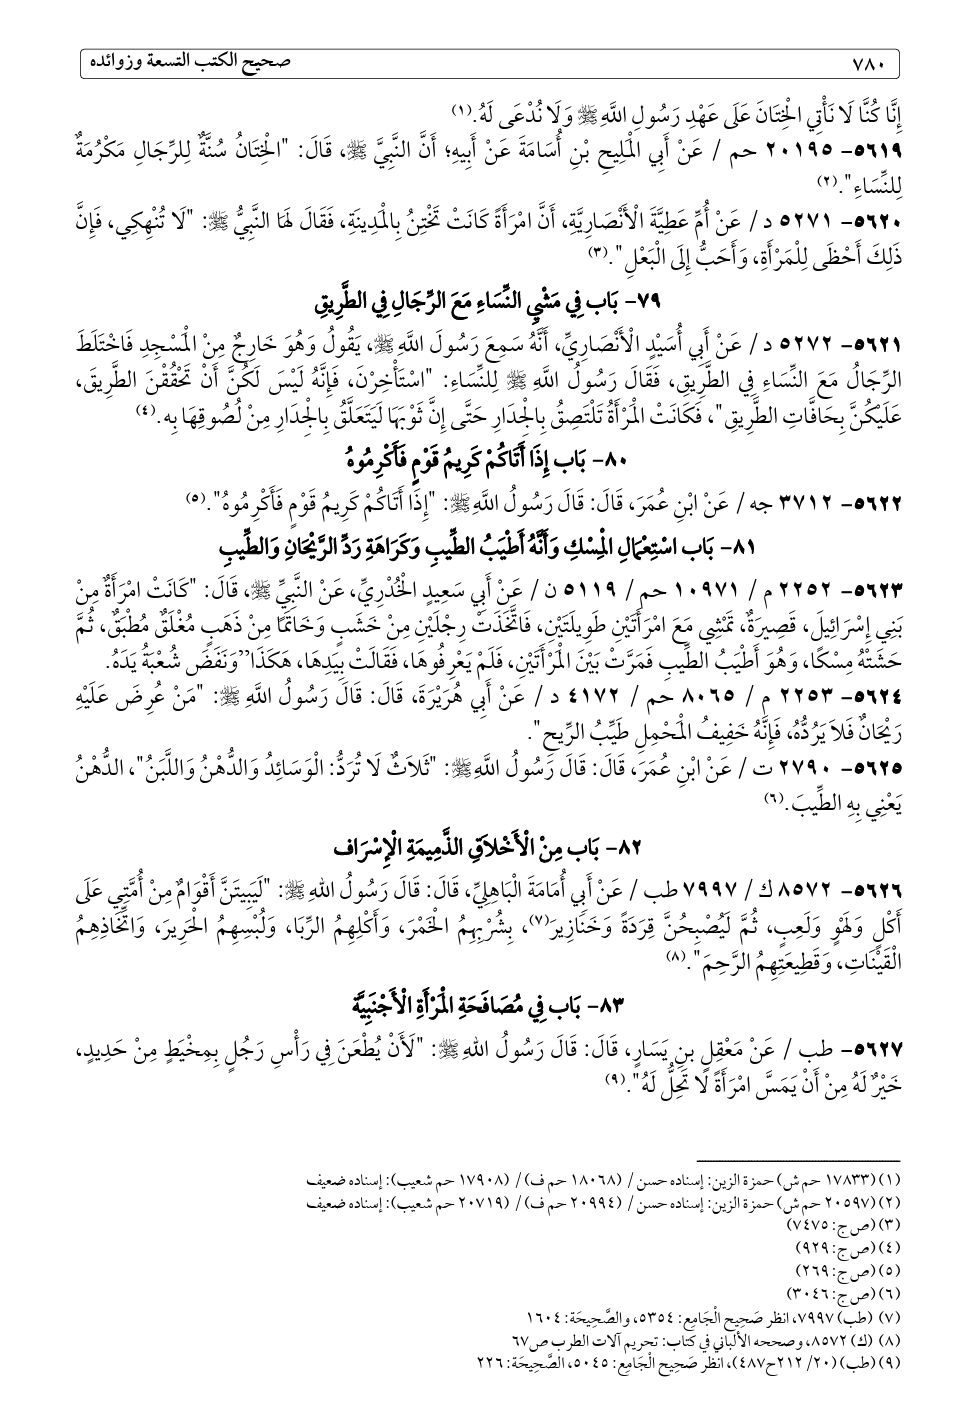 ٧٨٠ صحيح الكتب التسعة وزوائده
إِنَّا كُنَّا لَا نَأْتِي الْخِتَانَ عَلَى عَهْدِ رَسُولِ اللَّهِ ﷺ وَلَا نُدْعَى لَهُ.(١)
٥٦١٩- ٢٠١٩٥ حم / عَنْ أَبِي الْمَلِيحِ بْنِ أُسَامَةَ عَنْ أَبِيهِ؛ أَنَّ النَّبِيَّ ﷺ، قَالَ: "الْخِتَانُ سُنَّةٌ لِلرِّجَالِ مَكْرُمَةٌ
لِلنِّسَاءِ".(٢)
٥٦٢٠- ٥٢٧١ د/ عَنْ أُمِّ عَطِيَّةَ الْأَنْصَارِيَّةِ، أَنَّ امْرَأَةً كَانَتْ تَخْتِنُ بِالْمَدِينَةِ، فَقَالَ لَهَا النَّبِيُّ ﷺ: "لَا تُنْهِكِي، فَإِنَّ
ذَلِكَ أَحْظَى لِلْمَرْأَةِ، وَأَحَبُّ إِلَى الْبَعْلِ".(٣)
٧٩- بَاب فِي مَشْيِ النِّسَاءِ مَعَ الرِّجَالِ فِي الطَّرِيقِ
٥٦٢١- ٥٢٧٢ د/ عَنْ أَبِي أُسَيْدٍ الْأَنْصَارِيِّ، أَنَّهُ سَمِعَ رَسُولَ اللَّهِ ﷺ، يَقُولُ وَهُوَ خَارِجٌ مِنْ الْمَسْجِدِ فَاخْتَلَطَ
الرِّجَالُ مَعَ النِّسَاءِ فِي الطَّرِيقِ، فَقَالَ رَسُولُ اللَّهِ ﷺ لِلنِّسَاءِ: "اسْتَأْخِرْنَ، فَإِنَّهُ لَيْسَ لَكُنَّ أَنْ تَحْقُقْنَ الطَّرِيقَ،
عَلَيْكُنَّ بِحَافَّاتِ الطَّرِيقِ"، فَكَانَتْ الْمَرْأَةُ تَلْتَصِقُ بِالْجِدَارِ حَتَّى إِنَّ ثَوْبَهَا لَيَتَعَلَّقُ بِالْجِدَارِ مِنْ لُصُوقِهَا بِهِ.(٤)
٨٠- بَاب إِذَا أَتَاكُمْ كَرِيمُ قَوْمٍ فَأَكْرِمُوهُ
٥٦٢٢- ٣٧١٢ جه / عَنْ ابْنِ عُمَرَ، قَالَ: قَالَ رَسُولُ اللَّهِ ﷺ: "إِذَا أَتَاكُمْ كَرِيمُ قَوْمٍ فَأَكْرِمُوهُ".(٥)
٨١- بَاب اسْتِعْمَالِ الْمِسْكِ وَأَنَّهُ أَطْيَبُ الطِّيبِ وَكَرَاهَةِ رَدِّ الرَّيْحَانِ وَالطِّيبِ
٥٦٢٣- ٢٢٥٢ م / ١٠٩٧١ حم / ٥١١٩ ن / عَنْ أَبِي سَعِيدٍ الْخُدْرِيِّ، عَنْ النَّبِيِّ ﷺ، قَالَ: "كَانَتْ امْرَأَةٌ مِنْ
بَنِي إِسْرَائِيلَ، قَصِيرَةٌ، تَمْشِي مَعَ امْرَأَتَيْنِ طَوِيلَتَيْنِ، فَاتَّخَذَتْ رِجْلَيْنِ مِنْ خَشَبٍ وَخَاتَمًا مِنْ ذَهَبٍ مُغْلَقٌ مُطْبَقٌ، ثُمَّ
حَشَتْهُ مِسْكًا، وَهُوَ أَطْيَبُ الطِّيبِ فَمَرَّتْ بَيْنَ الْمَرْأَتَيْنِ، فَلَمْ يَعْرِفُوهَا، فَقَالَتْ بِيَدِهَا، هَكَذَا" وَنَفَضَ شُعْبَةُ يَدَهُ.
٥٦٢٤- ٢٢٥٣ م / ٨٠٦٥ حم / ٤١٧٢ د / عَنْ أَبِي هُرَيْرَةَ، قَالَ: قَالَ رَسُولُ اللَّهِ ﷺ: "مَنْ عُرِضَ عَلَيْهِ
رَيْحَانٌ فَلَا يَرُدُّهُ، فَإِنَّهُ خَفِيفُ الْمَحْمِلِ طَيِّبُ الرِّيحِ".
٥٦٢٥- ٢٧٩٠ ت / عَنْ ابْنِ عُمَرَ، قَالَ: قَالَ رَسُولُ اللَّهِ ﷺ: "ثَلَاثٌ لَا تُرَدُّ: الْوَسَائِدُ وَالدُّهْنُ وَاللَّبَنُ"، الدُّهْنُ
يَعْنِي بِهِ الطِّيبَ.(٦)
٨٢- بَاب مِنْ الْأَخْلَاقِ الذَّمِيمَةِ الْإِسْرَاف
٥٦٢٦- ٨٥٧٢ ك / ٧٩٩٧ طب / عَنْ أَبِي أُمَامَةَ الْبَاهِلِيِّ، قَالَ: قَالَ رَسُولُ اللهِ ﷺ: "لَيَبِيتَنَّ أَقْوَامٌ مِنْ أُمَّتِي عَلَى
أَكْلٍ وَلَهْوٍ وَلَعِبٍ، ثُمَّ لَيُصْبِحُنَّ قِرَدَةً وَخَنَازِيرَ(٧)، بِشُرْبِهِمُ الْخَمْرَ، وَأَكْلِهِمُ الرِّبَا، وَلُبْسِهِمُ الْحَرِيرَ، وَاتِّخَاذِهِمُ
الْقَيْنَاتِ، وَقَطِيعَتِهِمُ الرَّحِمَ".(٨)
٨٣- بَاب فِي مُصَافَحَةِ الْمَرْأَةِ الْأَجْنَبِيَّة
٥٦٢٧- طب / عَنْ مَعْقِلِ بنِ يَسَارٍ، قَالَ: قَالَ رَسُولُ اللهِ ﷺ: "لَأَنْ يُطْعَنَ فِي رَأْسِ رَجُلٍ بِمِخْيَطٍ مِنْ حَدِيدٍ،
خَيْرٌ لَهُ مِنْ أَنْ يَمَسَّ امْرَأَةً لَا تَحِلُّ لَهُ".(٩)
(١) (١٧٨٣٣ حم ش) حمزة الزين: إسناده حسن / (١٨٠٦٨ حم ف) / (١٧٩٠٨ حم شعيب): إسناده ضعيف
(٢) (٢٠٥٩٧ حم ش) حمزة الزين: إسناده حسن / (٢٠٩٩٤ حم ف) / (٢٠٧١٩ حم شعيب): إسناده ضعيف
(٣) (ص ج: ٧٤٧٥)
(٤) (ص ج: ٩٢٩)
(٥) (ص ج: ٢٦٩)
(٦) (ص ج: ٣٠٤٦)
(٧) (طب) ٧٩٩٧، انظر صَحِيح الْجَامِع: ٥٣٥٤، والصَّحِيحَة: ١٦٠٤
(٨) (ك) ٨٥٧٢، وصححه الألباني في كتاب: تحريم آلات الطرب ص٦٧
(٩) (طب) (٢٠/ ٢١٢ح٤٨٧)، انظر صَحِيح الْجَامِع: ٥٠٤٥، الصَّحِيحَة: ٢٢٦